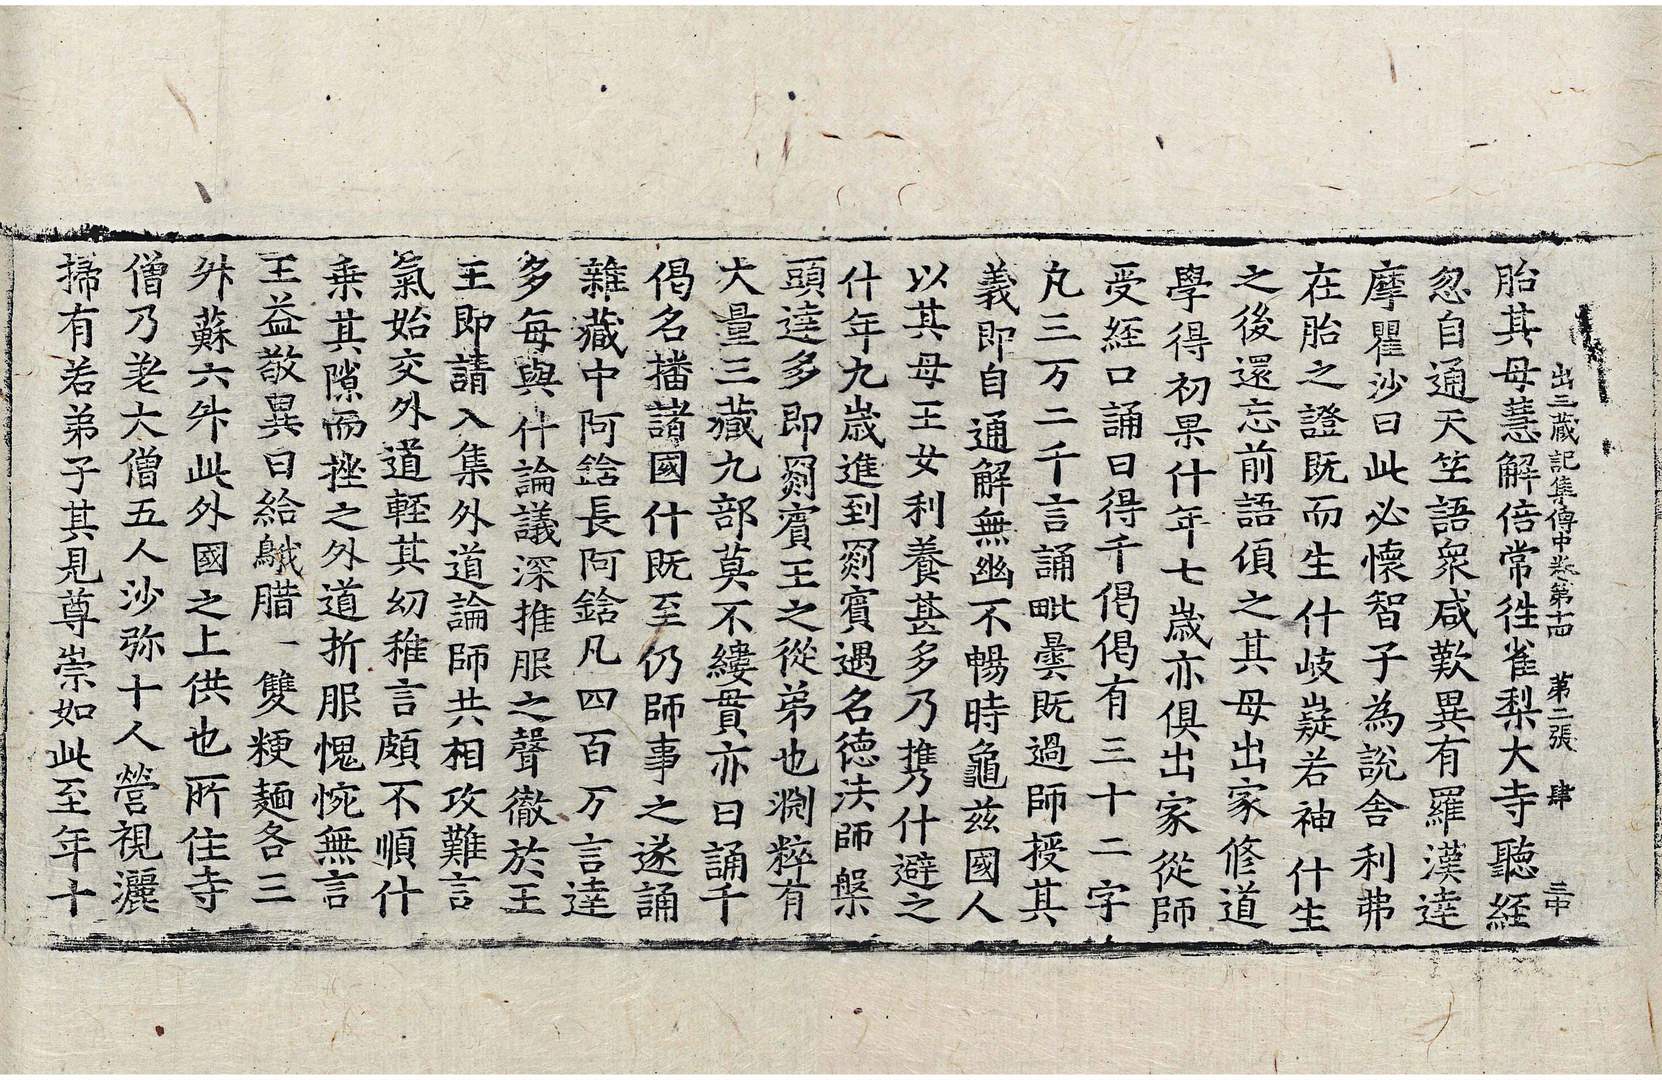 出三藏記集傳中卷第十四 第二張 肆
胎其母慧解倍常徃雀梨大寺聽経
忽自通天竺語衆咸歎異有羅漢達
摩瞿沙曰此必懷智子為說舍利弗
在胎之證既而生什岐嶷若神什生
之後還忘前語傾之其母出家修道
學得初果什年七歲亦俱出家從師
受経口誦日得千偈偈有三十二字
凡三万二千言誦毗曇既過師授其
義即自通解無幽不暢時龜茲國人
以其母王女利養甚多乃携什避之
什年九歲進到罽賓遇名德法師槃
頭達多即罽賓王之從弟也渊粹有
大量三藏九部莫不縷貫亦日誦千
偈名播諸國什既至仍師事之遂誦
雜藏中阿鋡長阿鋡凡四百万言達
多每與什論議深推服之聲徹於王
王即請入集外道論師共相攻難言
氣始交外道輕其幼稚言頗不順什
乗其隙而挫之外道折服愧惋無言
王益敬異日給鵝腊一雙粳麺各三
升蘇六升此外國之上供也所住寺
僧乃差大僧五人沙弥十人營視灑
掃有若弟子其見尊崇如此至年十